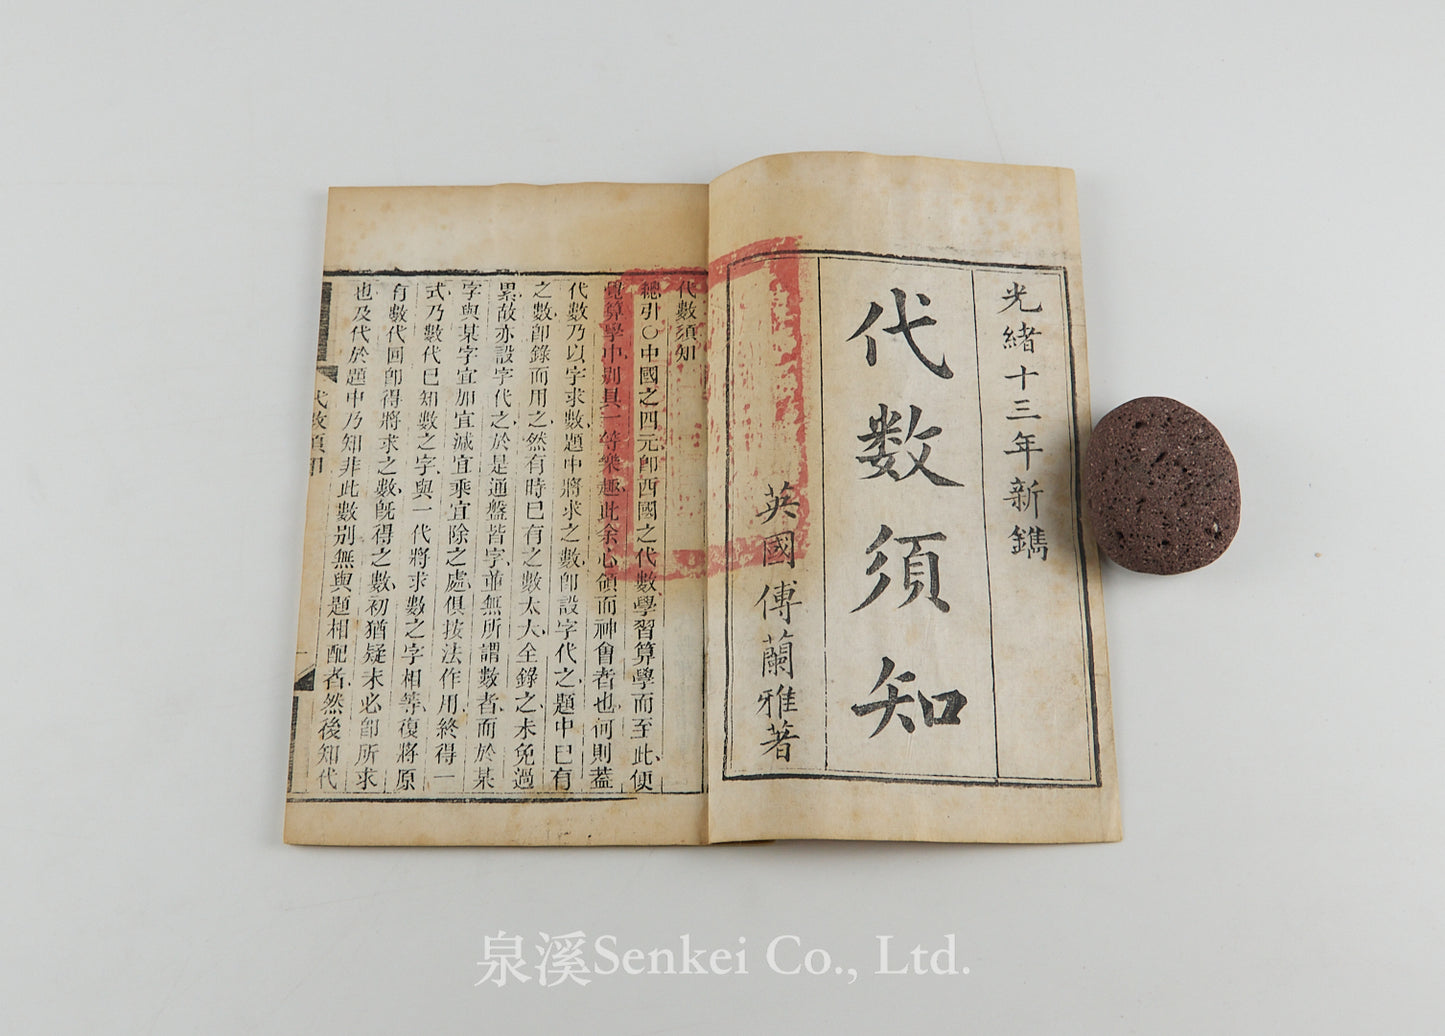 光緒十三年新鐫
代數須知
英國傅蘭雅著
代數須知
總引○中國之四元卽西國之代數學習算學而至此便
覺算學中別具一等樂趣此余心領而神會者也何則蓋
代數乃以字求數題中將求之數卽設字代之題中已有
之數卽錄而用之然有時已有之數太大全錄之未免過
累故亦設字代之於是通盤皆字並無所謂數者而於某
字與某字宜加宜減宜乘宜除之處俱按法作用終得一
式乃數代已知數之字與一代將求數之字相等復將原
有數代回卽得將求之數旣得之數初猶疑未必卽所求
也及代於題中乃知非此數別無與題相配者然後知代
代數須知
泉溪Senkei Co., Ltd.